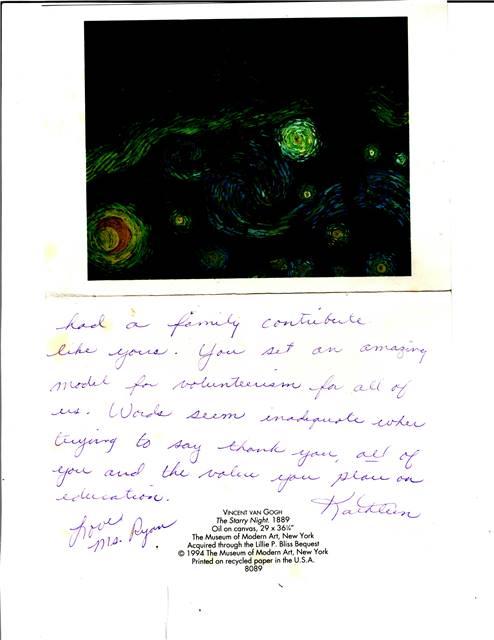 had a family contribute
like yours. You set an amazing
model for volunteerism for all of
us. Words seem inadequate when
trying to say thank you, all of
you and the value you place on
education.
Kathleen
Love
Ms. Ryan
VINCENT VAN GOGH
The Starry Night. 1889
Oil on canvas, 29 x 36¼"
The Museum of Modern Art, New York
Acquired through the Lillie P. Bliss Bequest
© 1994 The Museum of Modern Art, New York
Printed on recycled paper in the U.S.A.
8089